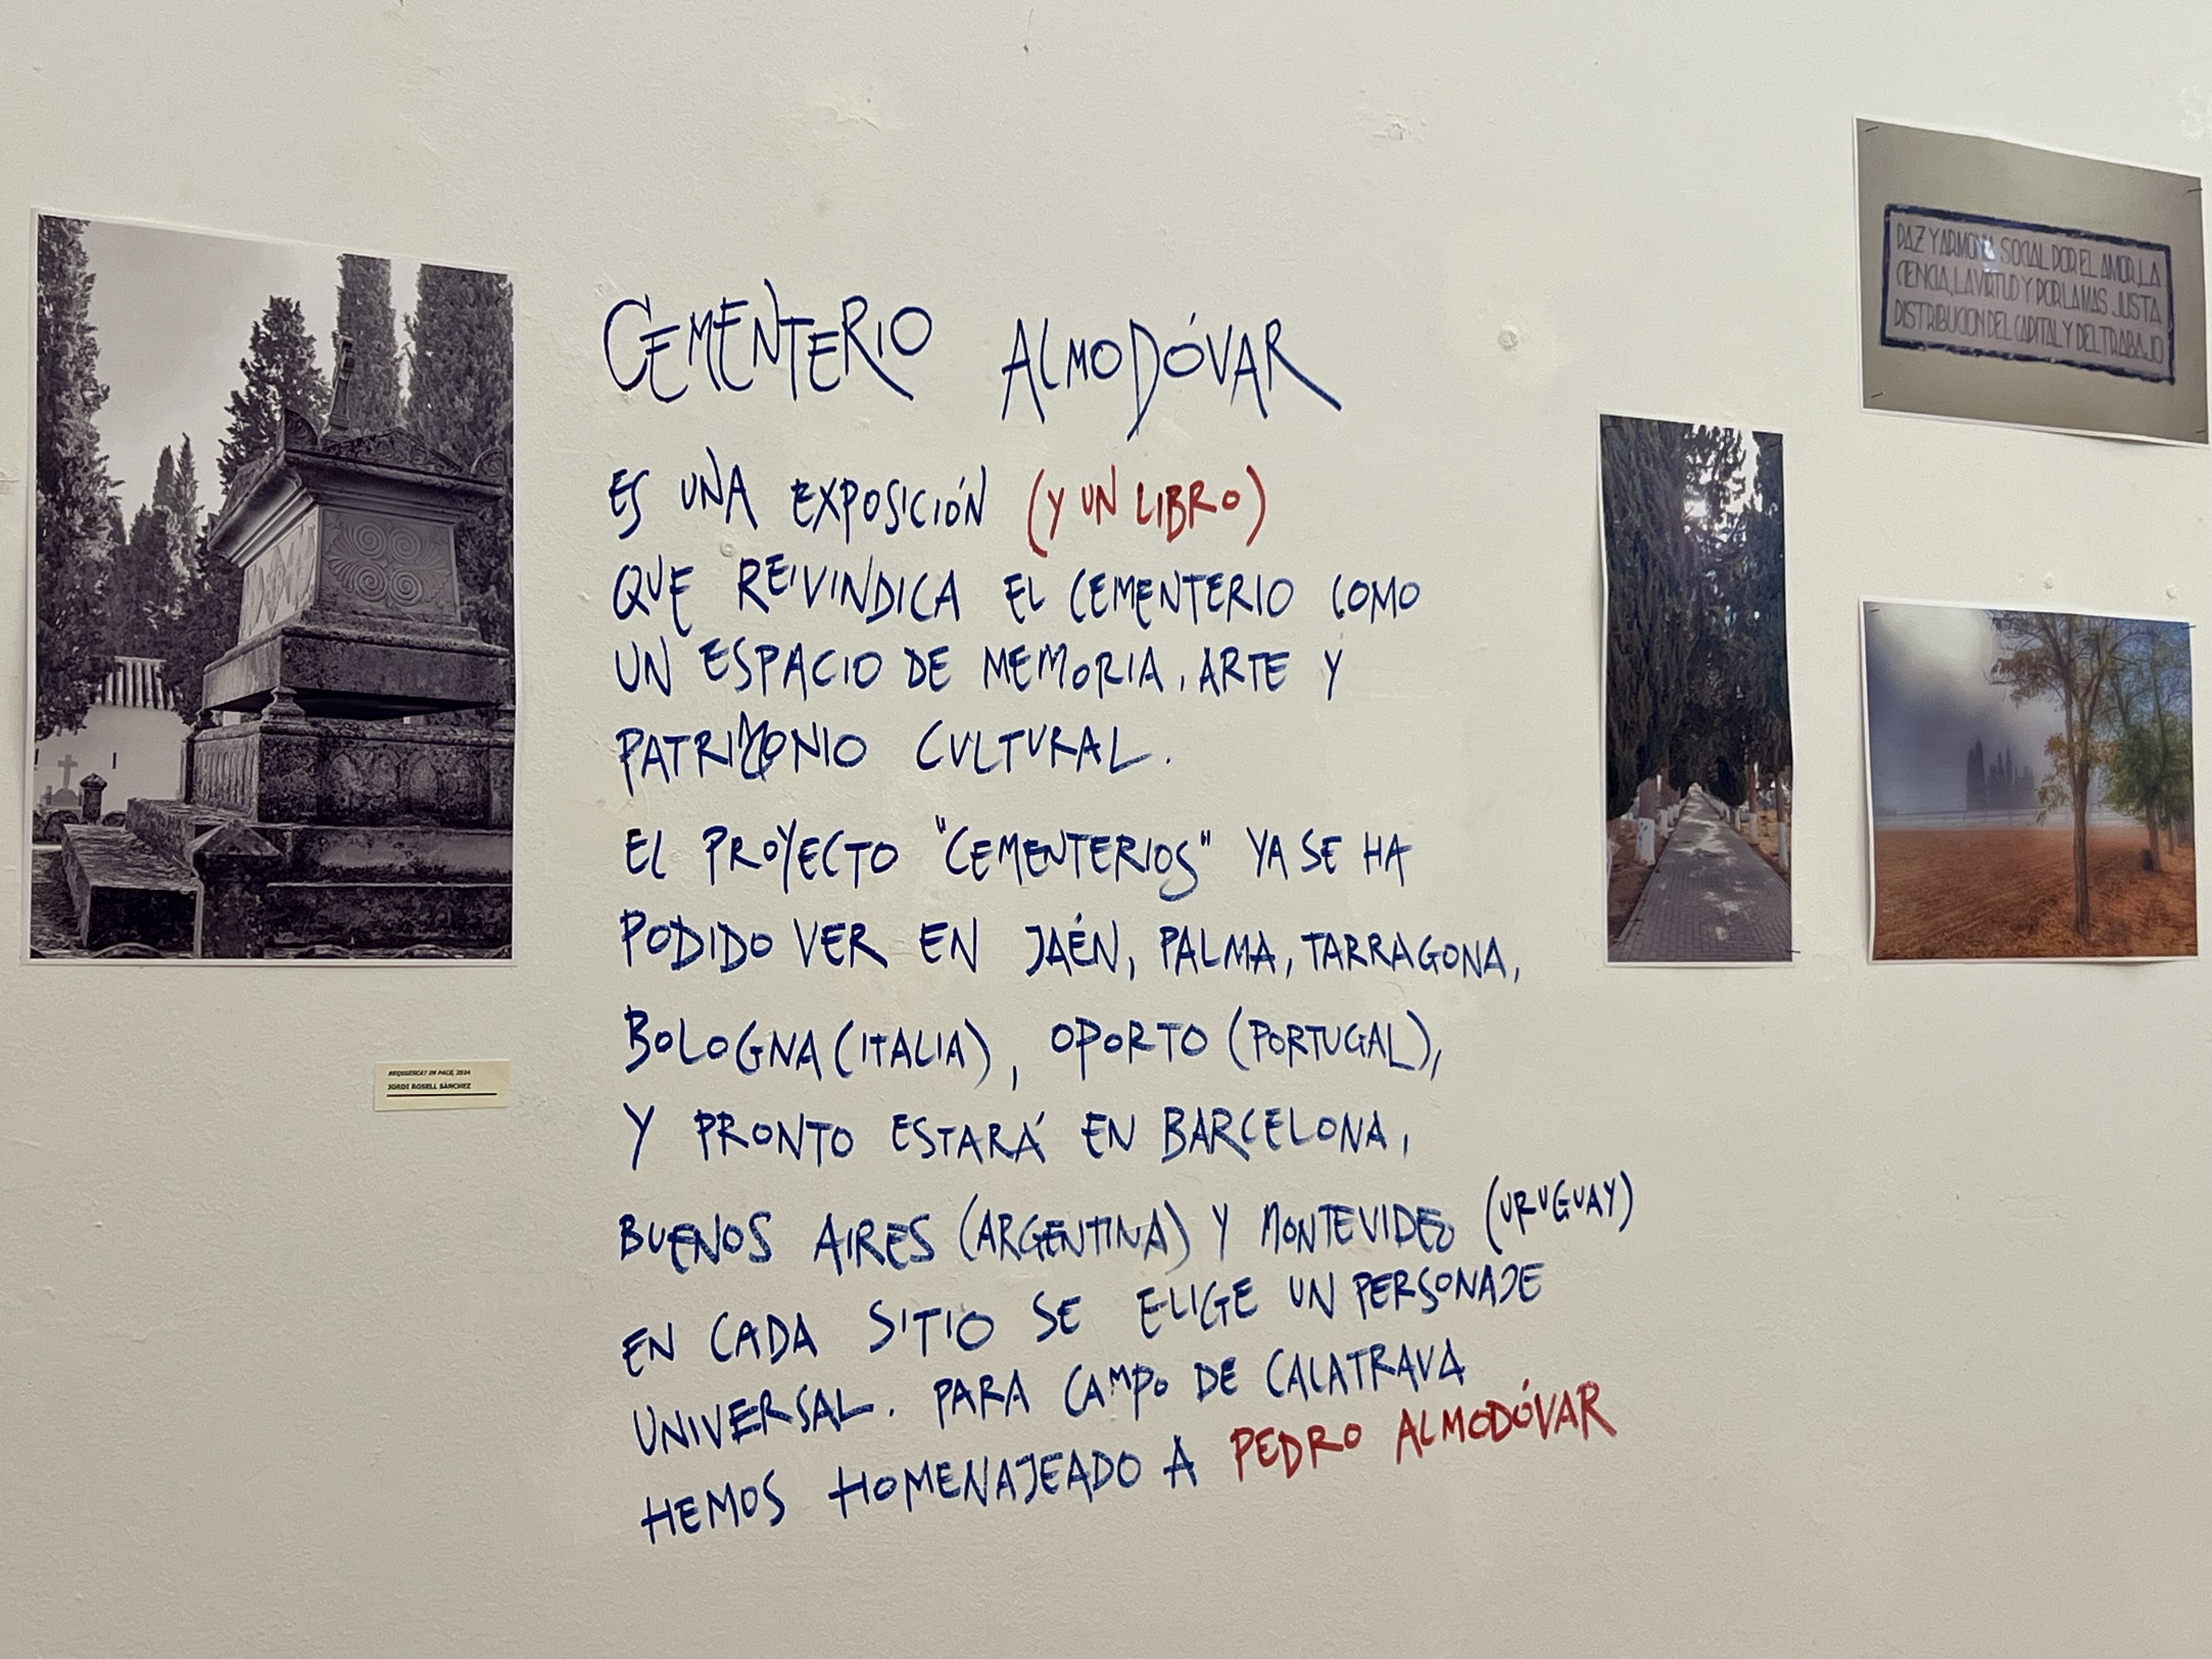 CEMENTERIO ALMODÓVAR
ES UNA EXPOSICIÓN (Y UN LIBRO)
QUE REIVINDICA EL CEMENTERIO COMO
UN ESPACIO DE MEMORIA, ARTE Y
PATRIMONIO CULTURAL.
EL PROYECTO "CEMENTERIOS" YA SE HA
PODIDO VER EN JAÉN, PALMA, TARRAGONA,
BOLOGNA (ITALIA), OPORTO (PORTUGAL),
Y PRONTO ESTARÁ EN BARCELONA,
BUENOS AIRES (ARGENTINA) Y MONTEVIDEO (URUGUAY)
EN CADA SITIO SE ELIGE UN PERSONAJE
UNIVERSAL. PARA CAMPO DE CALATRAVA
HEMOS HOMENAJEADO A PEDRO ALMODÓVAR
REQUIESCAT IN PACE, 2024
JORDI ROSELL SÁNCHEZ
PAZ Y ARMONIA SOCIAL POR EL AMOR, LA
CIENCIA, LA VIRTUD Y POR LA MAS JUSTA
DISTRIBUCION DEL CAPITAL Y DEL TRABAJO